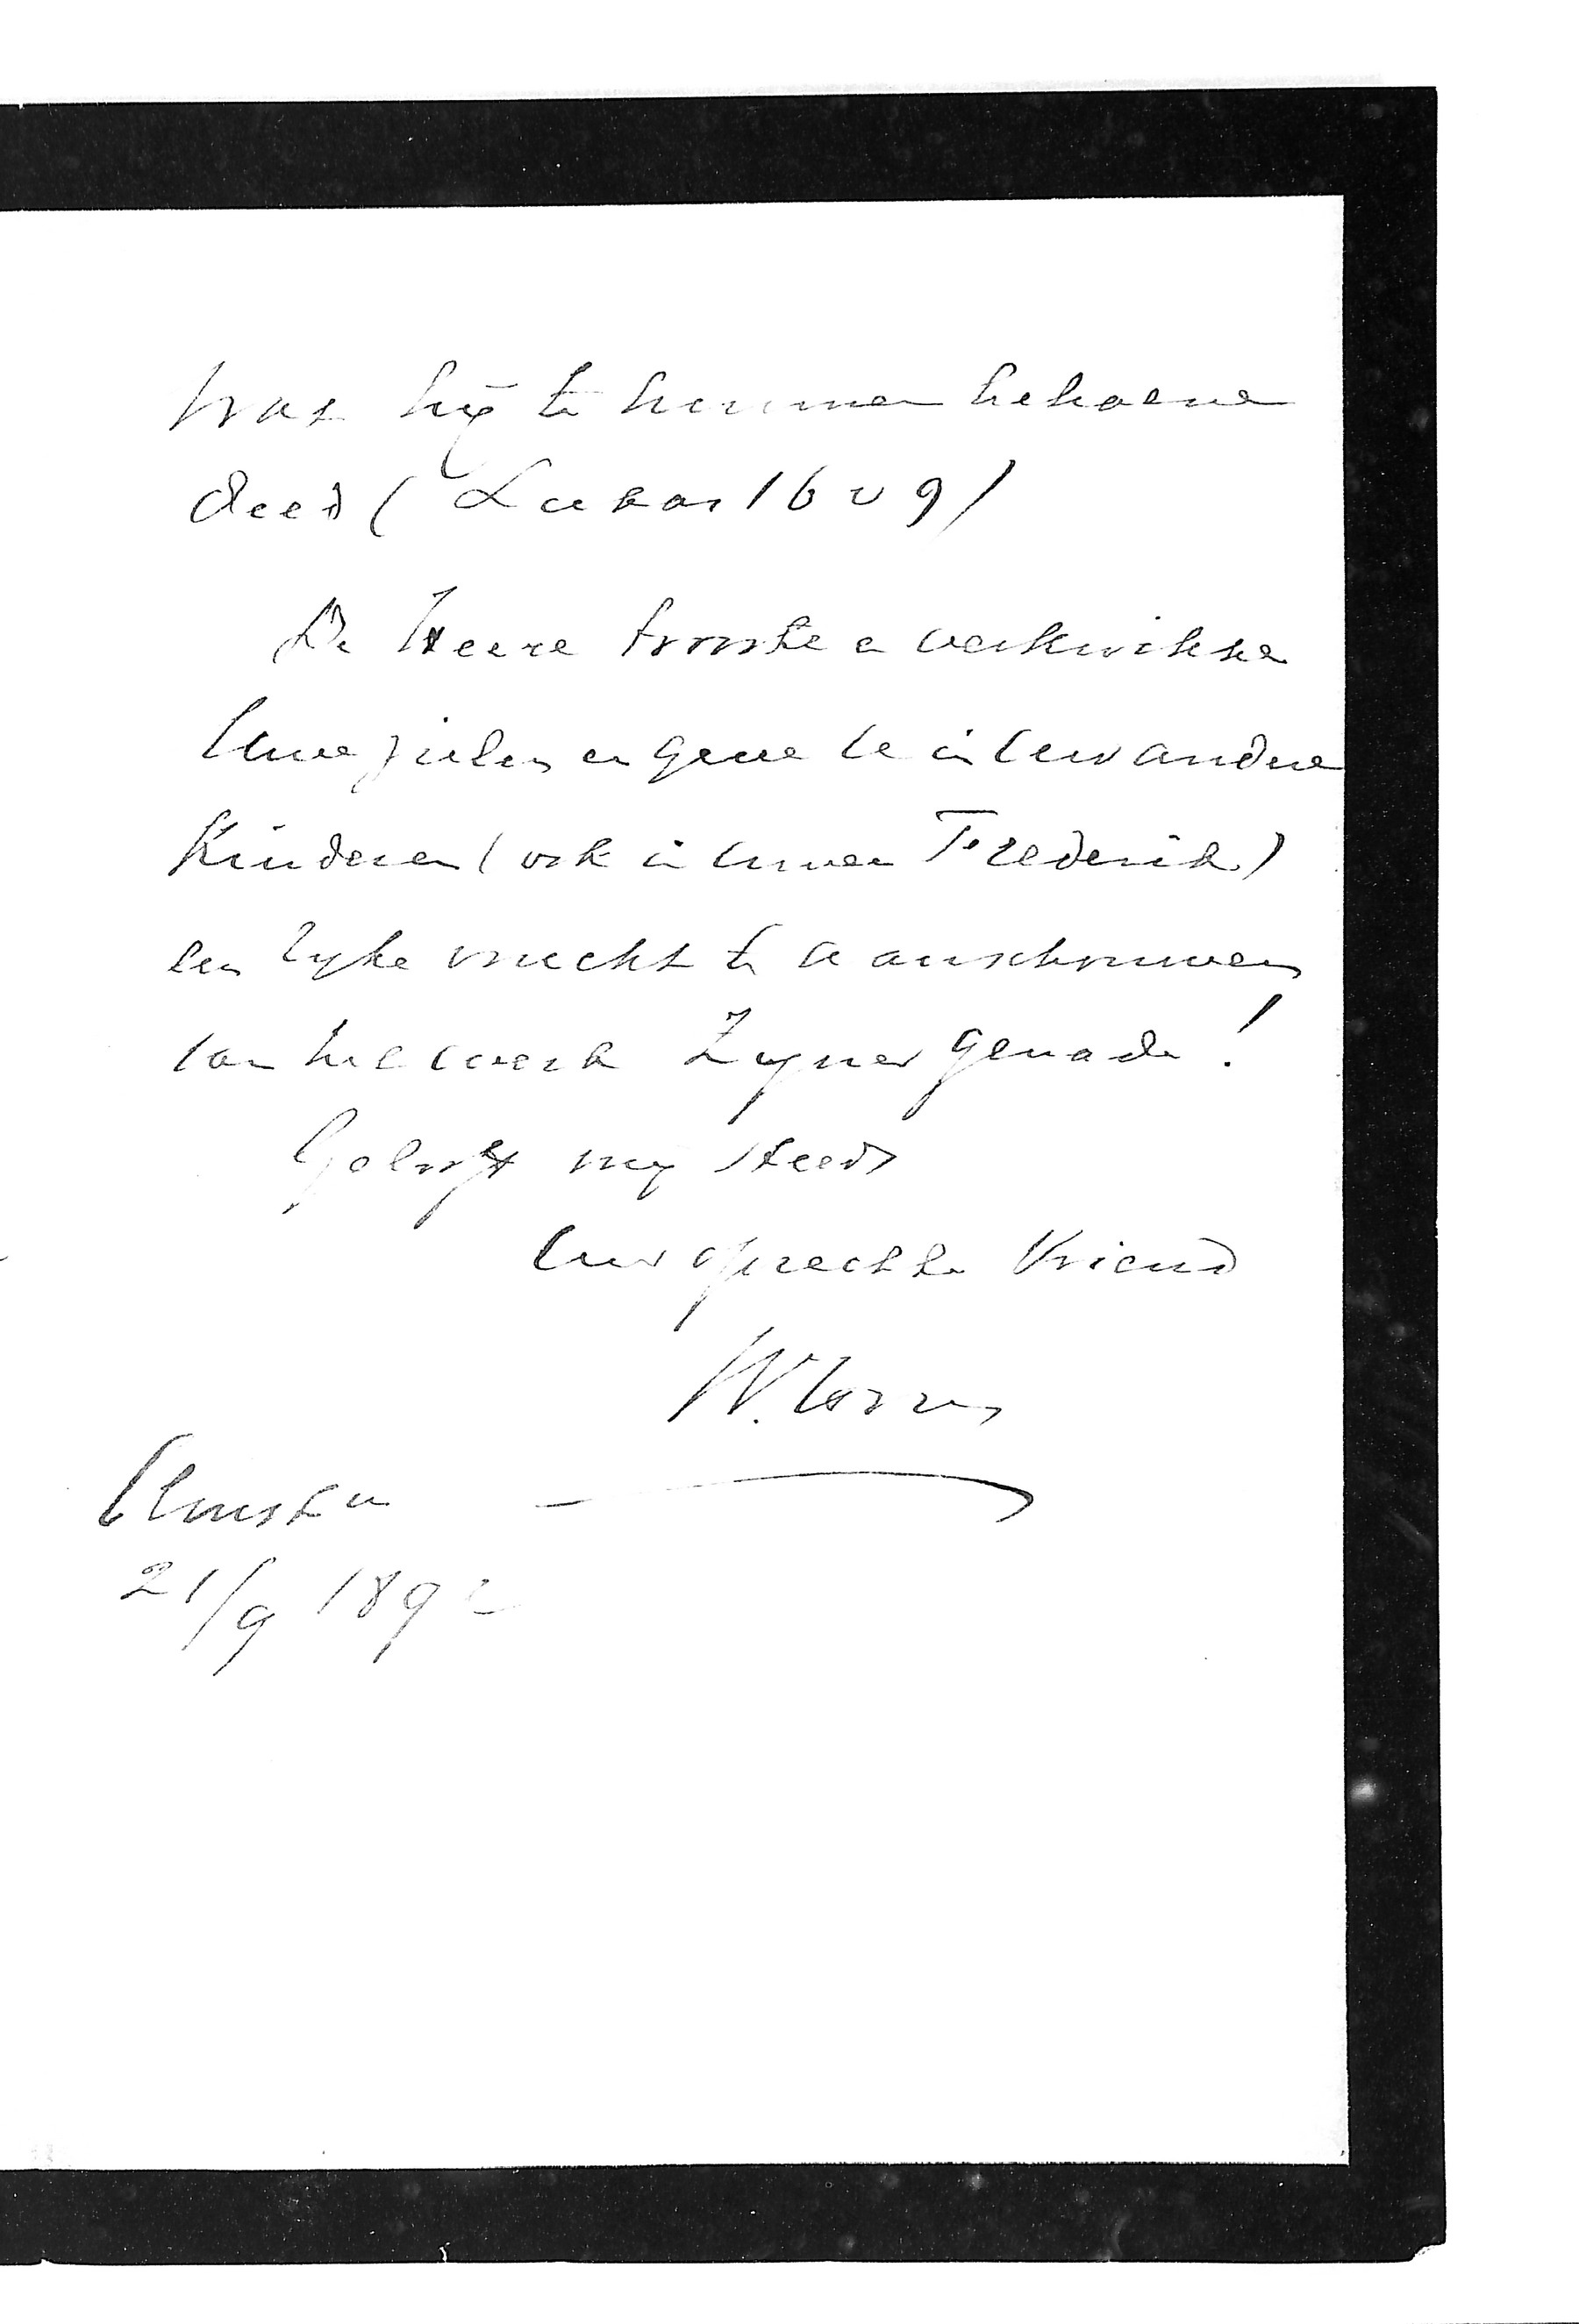 was hij te hunnen behoeve
deed (Lukas 16 v 9)
De Heere trooste en verkwikke
Uwe zielen en geve U in Uw andere
Kinderen (ook in Uwen Frederik)
een rijke vrucht te aanschouwen
van het werk Zijner genade!
Gelooft mij steeds
Uw oprechte Vriend
W.
21/9 1892